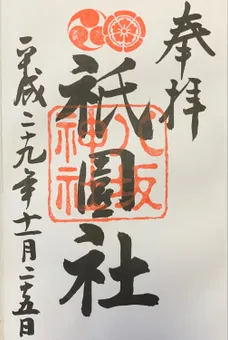 奉拝
祇園社
八坂
神社
平成二十九年十一月二十五日